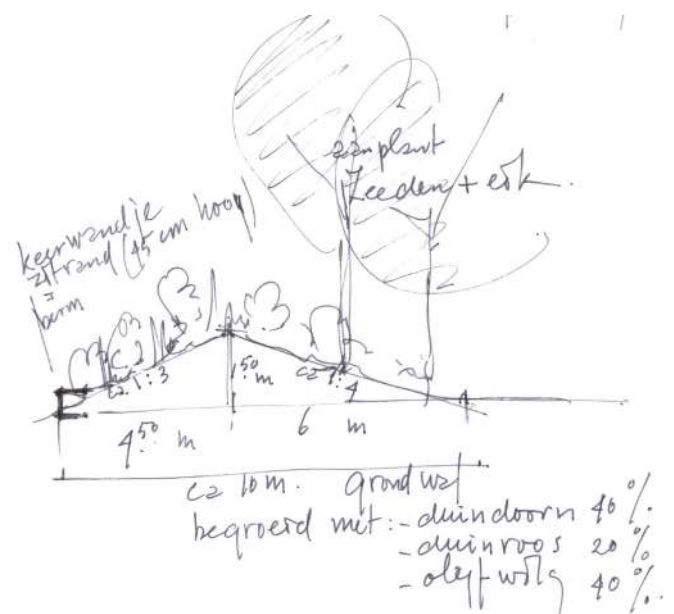 aanplant
Zeeden + eik.
keerwandje
zitrand (45 cm hoog)
=
berm
ca. 1:3
1.50 m
ca 1:4
4.50 m
6 m
ca 10 m. grondwal
begroeid met: - duindoorn 40 %.
- duinroos 20 %
- olijfwilg 40 %.